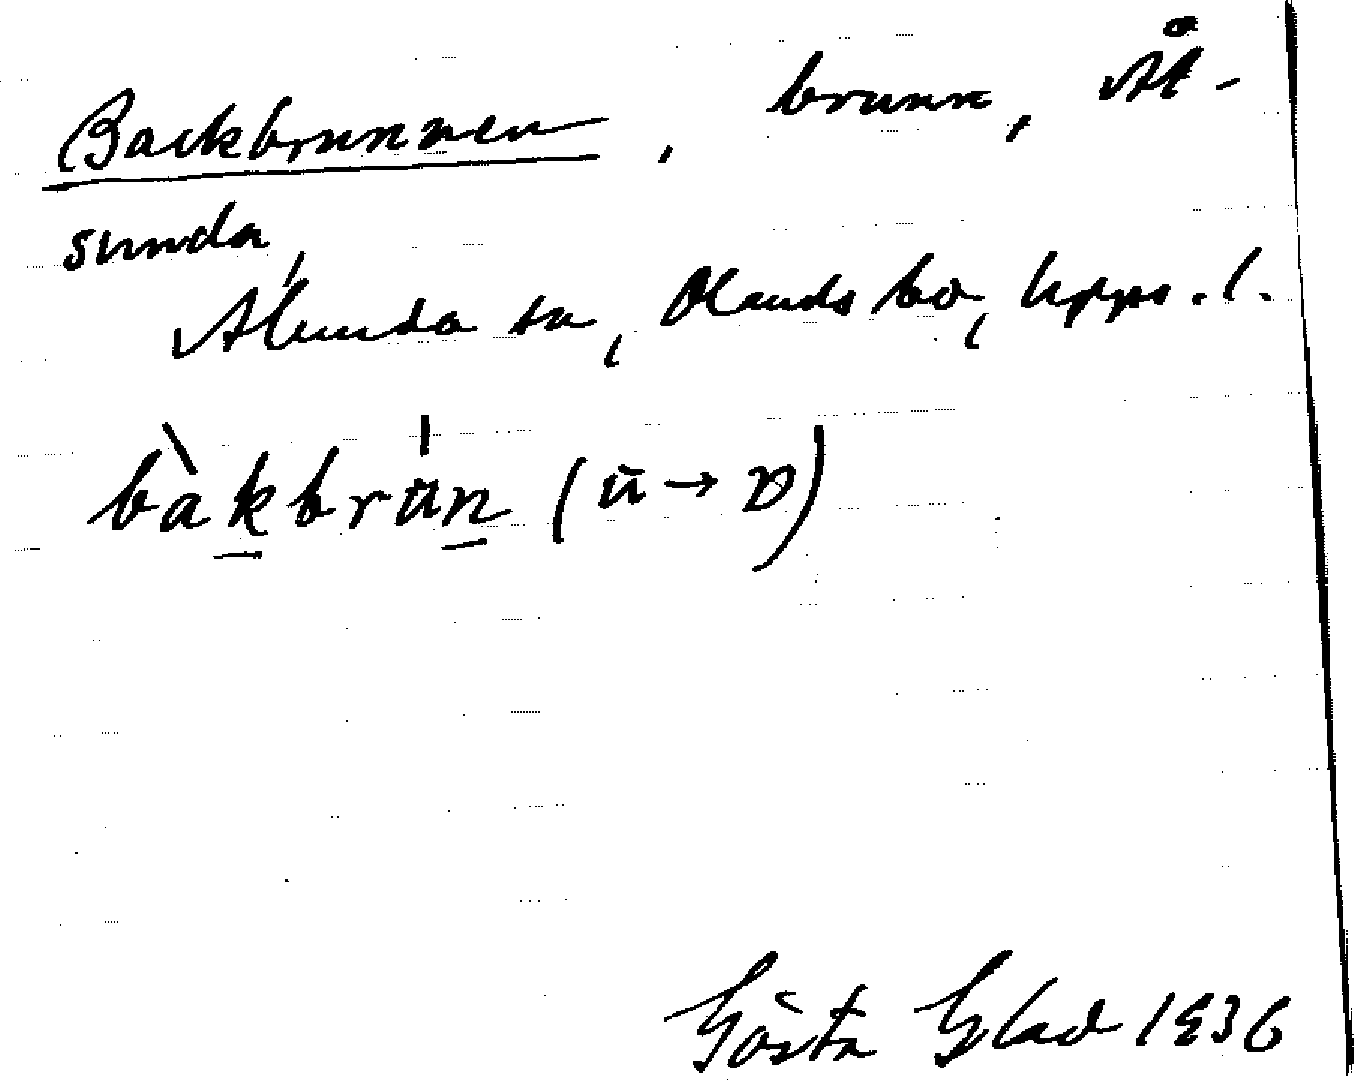 Backbrunnen, brunn, Å-
sunda,
Alunda sn, Olands hd, Upps. l.
bàkbrun (ū → ʋ)
Gösta Glad 1936